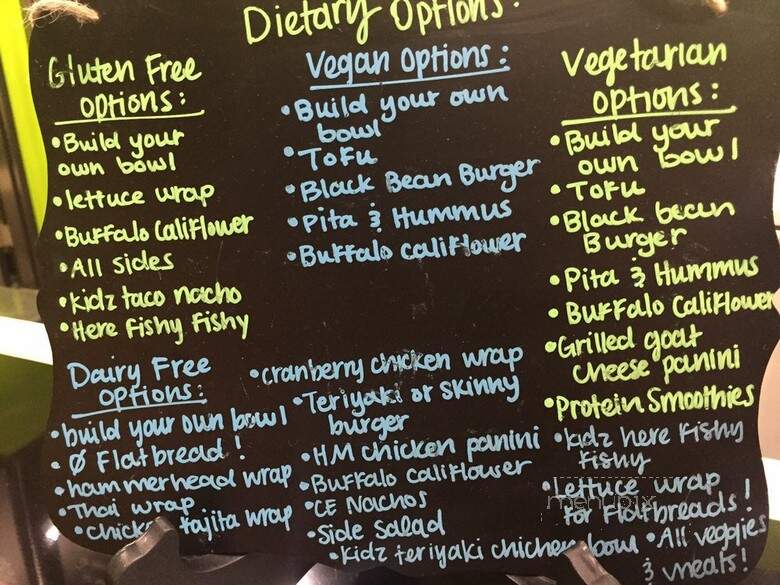 Dietary Options:
Gluten Free
options:
• Build your
own bowl
• lettuce wrap
• Buffalo Califlower
• All sides
• Kidz taco nacho
• Here fishy fishy
Vegan Options:
• Build your own
bowl
• Tofu
• Black Bean Burger
• Pita & Hummus
• Buffalo califlower
Vegetarian
options:
• Build your
own bowl
• Tofu
• Black bean
Burger
• Pita & Hummus
• Buffalo Califlower
• Grilled goat
cheese panini
• Protein Smoothies
Dairy Free
options:
• build your own bowl
• Ø Flatbread!
• hammerhead wrap
• Thai wrap
• chicken fajita wrap
• cranberry chicken wrap
• Teriyaki or skinny
burger
• HM chicken panini
• Buffalo califlower
• CE Nachos
• Side salad
• Kidz teriyaki chicken bowl
• kidz here fishy
fishy
• Lettuce wrap
for flatbreads!
• All veggies
& meats!
menupix